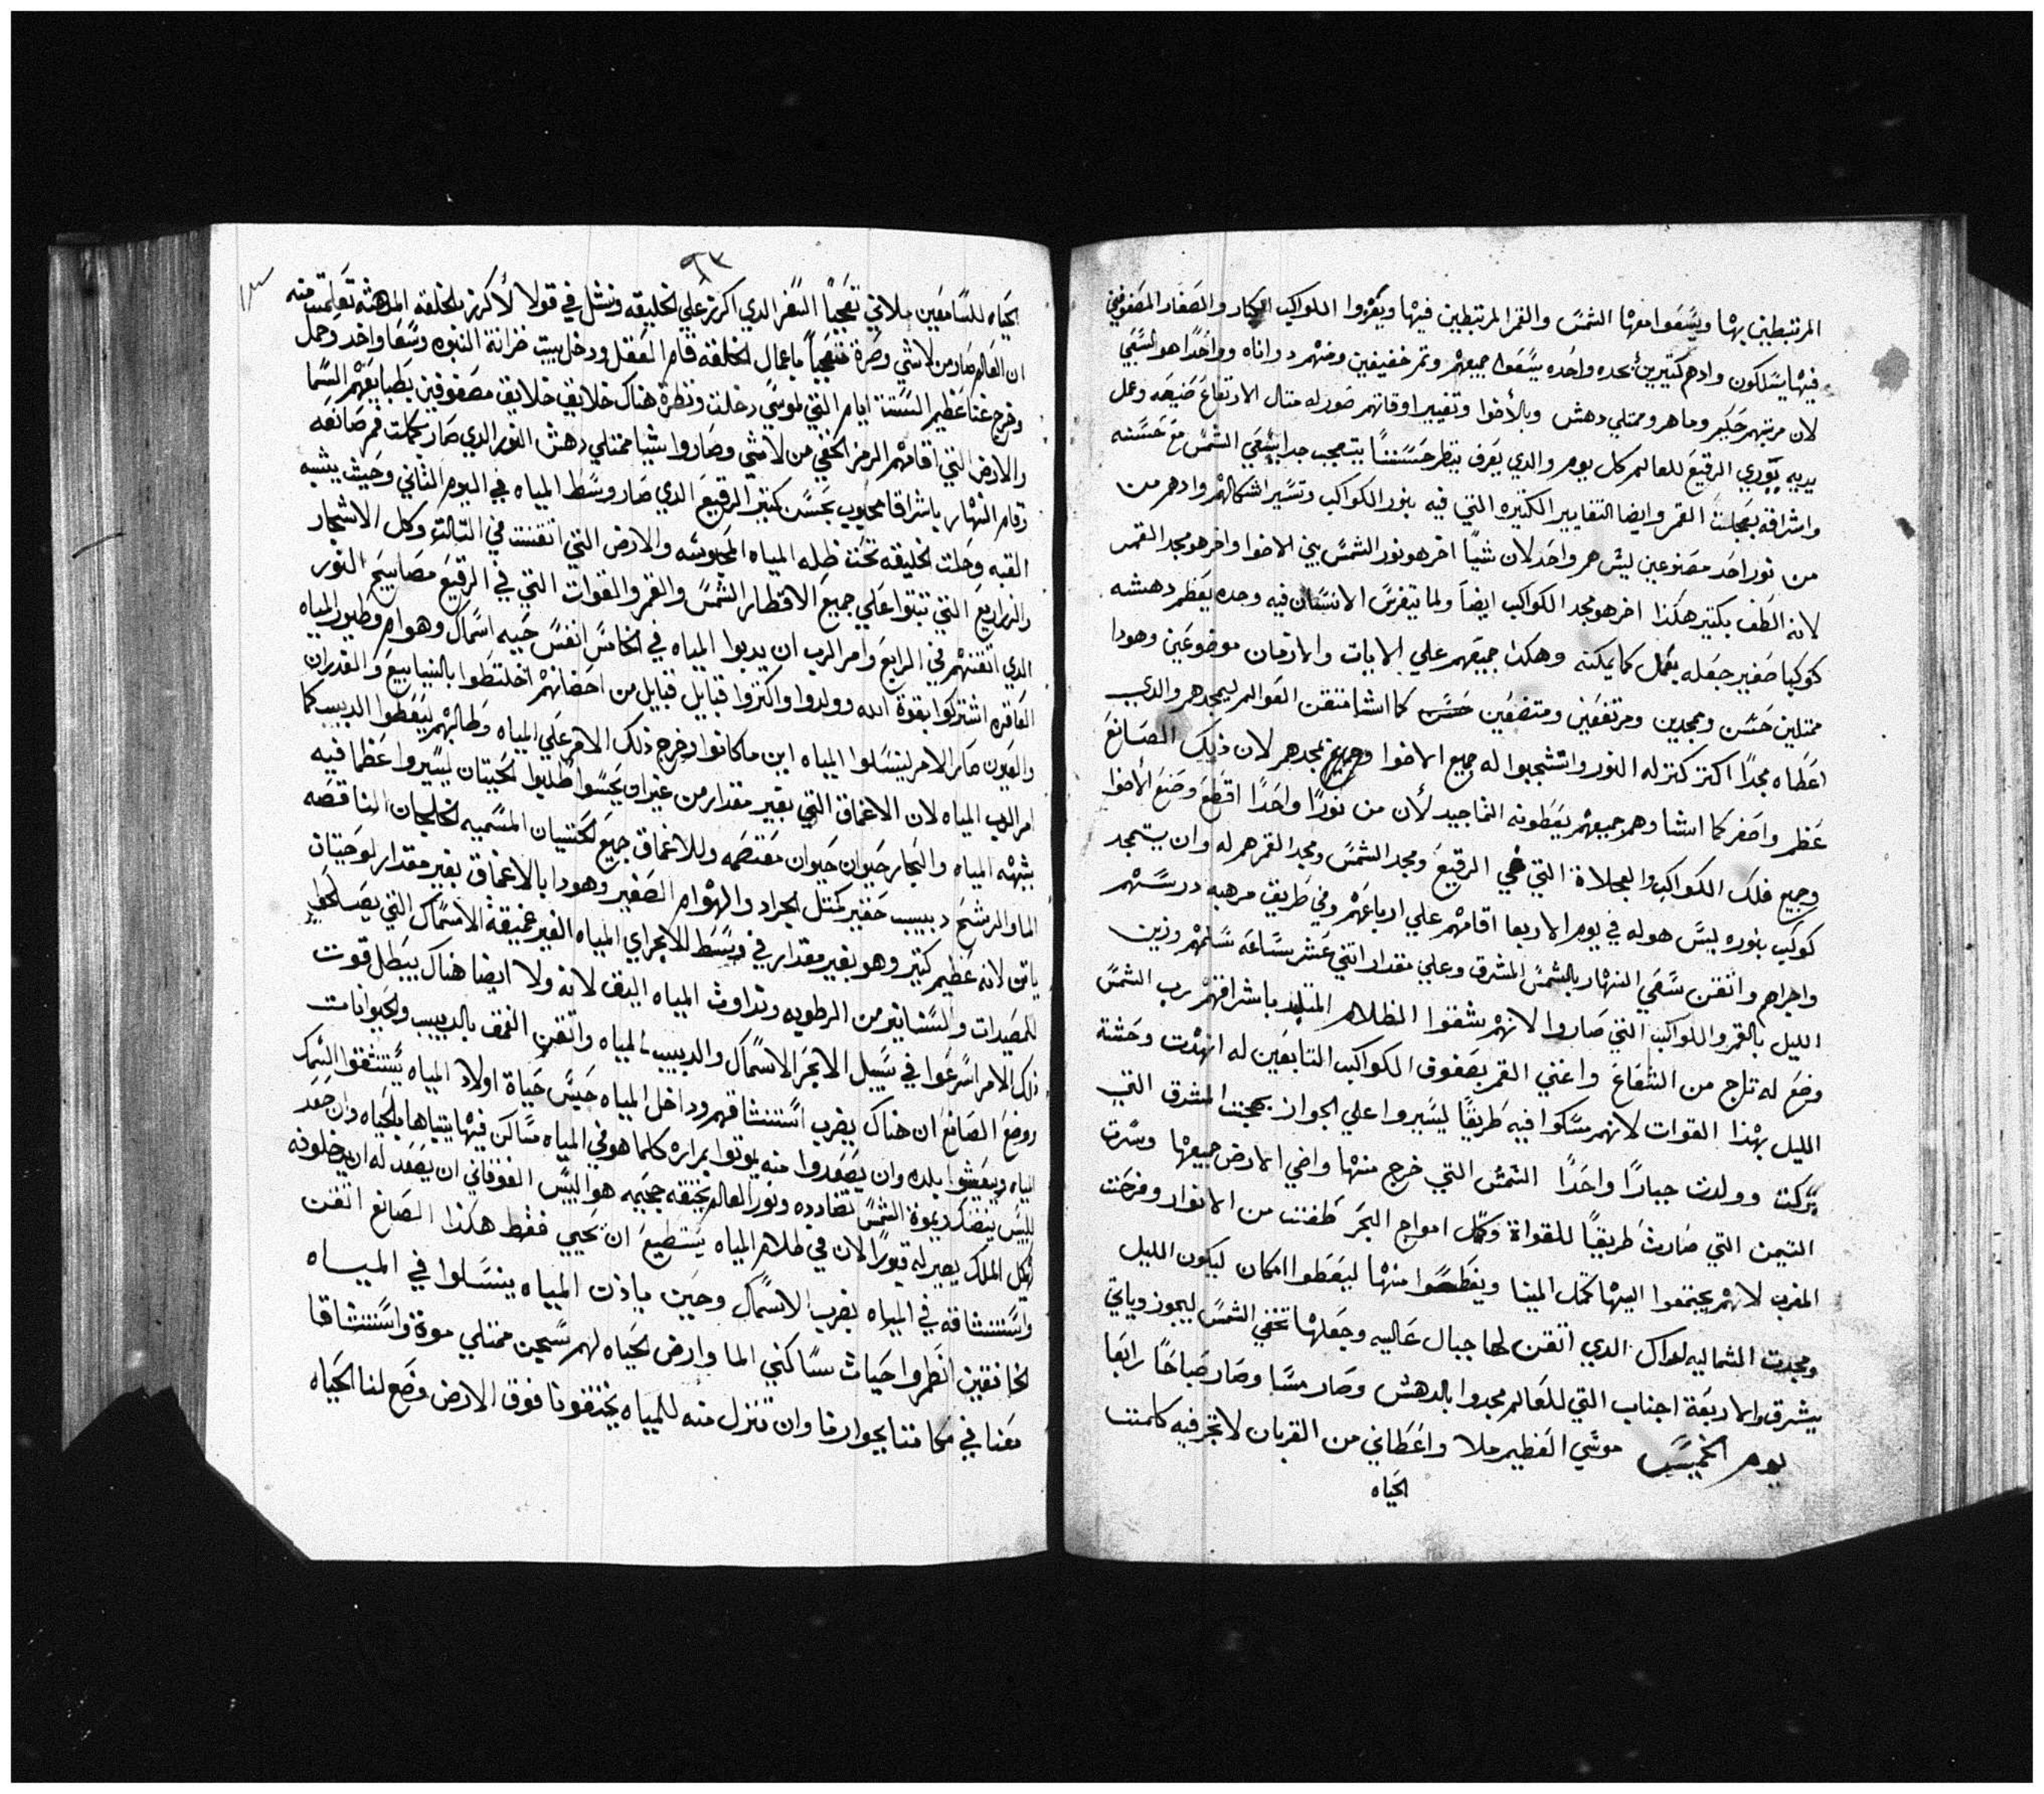 المرتبطين بها ويسعوا معها الشمس والقمر المرتبطين فيها ويغزوا الكواكب الكبار والصغار المصفوفين
فيها يسلكون وادهم كتيرين بحده واحده يسعوا جميعهم وتم خفيفين ومنهم دواناه وواحدا هو السعي
لان مربيهم حكيم وماهر وممتلي دهش وبالأضوا وتغيير اوقاتهم صور له متال الارتفاع صنيعه وعمل
يديه يوري الرقيع للعالم كل يوم والدي يعرف ينظر حسننا يتعجب جدا بسعي الشمس مع حسنه
واشراقه بعجلت القمر وايضا التغايير الكتيره التي فيه بنور الكواكب وتسير اشكالهم وادهم من
من نور احد مصنوعين ليس هم واحد لان شيا اخر هو نور الشمس بين الاضوا واخر هو مجد القمر
لانه الطف بكتير هكذا اخر هو مجد الكواكب ايضا ولما يتفرس الانسان فيه وحده يعظم دهشه
كوكبا صغير جعله يعمل كما يمكنه وهكذا جميعهم علي الايات والازمان موضوعين وهودا
ممتلين حسن ومجدين ومرتفعين ومتضعين كما اشا متقن العوالم ليمجدهم والدي
اعطاه مجدا اكتر كتر له النور واتشجبوا له جميع الاضوا وجميع مجدهم لان ذلك الصانع
عظم واصغر كما اشا وهم جميعهم يعطونه التماجيد لأن من نورا واحدا اقطع وصنع الاضوا
وجميع فلك الكواكب والعجلاة التي في الرقيع ومجد الشمس ومجد القمر هم له وان يتمجد
كوكب بنوره ليس هو له في يوم الاربعا اقامهم علي ارباعهم وفي طريق مرهبه درسهم
واجراهم واتقن سعي النهار بالشمس المشرق وعلي مقدار اتني عشر ساعه سلمهم وزين
الليل بالقمر والكواكب التي صاروا لانهم يشقوا الظلام المتلبد باشراقهم رب الشمس
وضع له تاج من الشعاع واغني القمر بصفوف الكواكب التابعين له انهدت وحشة
الليل بهذا القوات لانهم سلكوا فيه طريقا ليسيروا علي الجواز بهجت المشرق التي
تركت وولدت جبارا واحدا الشمس التي خرج منها واضي الارض جميعها وسرت
التيمن التي صارت طريقا للقواة وكل امواج البحر طفت من الانوار وفرحت
المغرب لانهم يجتمعوا اليها كتل المينا ويغطسوا منها ليعطوا امكان ليكون الليل
ومجدت الشماليه لداك الدي اتقن لها جبال عاليه وجعلها تخفي الشمس ليجوز وياتي
بيشرق والاربعة اجناب التي للعالم مجدوا بالدهش وصار مسا وصار صباحا رابعا
يوم الخميس موسي العظيم ملا واعطاني من القربان لاتجر فيه كلمت
الحياه
٩٣
الحياه للسامعين ملاني تعجبا السفر الدي اكرز علي الخليقه ونشل في قولا لأكرز بالخلقه المدهشه تعلمت منه
ان العالم صار من لاشي وصرة متعجبا باعمال الخلقه قام العقل ودخل بيت خزانة النبوه وسعا واخد وحمل
وخرج غنا عظيم الستت ايام التي لموسي دخلت ونظرة هناك خلايق خلايق مصفوفين بطبايعهم السما
والارض التي اقامهم الرمز الخفي من لاشي وصاروا شيا ممتلي دهش النور الدي صار بكلمت فم صانعه
وقام النهار باشراقا محبوب بحسن كتير الرقيع الدي صار وسط المياه في اليوم التاني وحيت يشبه
القبه وحلت الخليقه تحت ظله المياه المحبوسه والارض التي اتقنت في التالت وكل الاشجار
والزراريع التي تبتوا علي جميع الاقطار الشمس والقمر والقوات التي في الرقيع مصابيح النور
الدي اتقنهم في الرابع وامر الرب ان يدبوا المياه في الخامس انفس حيه اسماك وهوام وطيور المياه
العاقره اشتركوا بقوة الله وولدوا واكتروا قبايل قبايل من احضانهم اختلتطوا بالينابيع والغدران
والعيون صار الامر لينسلوا المياه اين ماكانوا وخرج ذلك الامر علي المياه وطالبهم ليعطوا الدبيب كما
امر الرب المياه لان الاعماق التي بغير مقدار من غير اف يحبسوا طلبوا الحيتان ليسيروا عظما فيه
بشبه المياه والبحار حيوان حيوان مقتضمه وللاعماق جميع لحتنيان المسميه لخلجان الناقصه
الما والرشح دبيب حقير كمتل الجراد والهوام الصغير وهودا بالاعماق بغير مقدار لوحيتان
ياتن لانه عظيم كتير وهو بغير مقدار في وسط للابحراي المياه الغير عميقة الاسماك التي يصلحوا
للمصيدات والستانير من الرطوبه وتداوت المياه اليف لانه ولا ايضا هناك يبطل قوت
ذلك الامر اسرعوا في سبيل الابحر الاسماك والدبيب المياه واتقن الغمق بالدبيب والحيوانات
ووضع الصانع ان هناك يضرب استنشاقهم وداخل المياه حبس حياة اولاد المياه يستنشقوا السمك
المياه ويعيشوا بلده وان يصعدوا منه يموتوا بمراره كلما هو في المياه مساكن فيها يتباها بالحياه وان صعد
لليبس ينضك ويموة الشمس تضادده ونور العالم يخنقه جحيمه هو اليبس الفوقاني ان يصعد له ان يدخلونه
لهكل الملك يصير له قبورا لان في ظلام المياه يستطيع ان يحيي فقط هكذا الصانع اتقن
واستنشاقه في المياه يضرب الاسماك وحين ياذت المياه ينسلوا في المياه
لخانقين انظروا حياث ساكني الما وارض الحياه لهم سجن ممتلي موة واستنشاقا
معنا في مكاننا بجوارنا وان تنزل منه للمياه يختنقونا فوق الارض وضع لنا الحياه